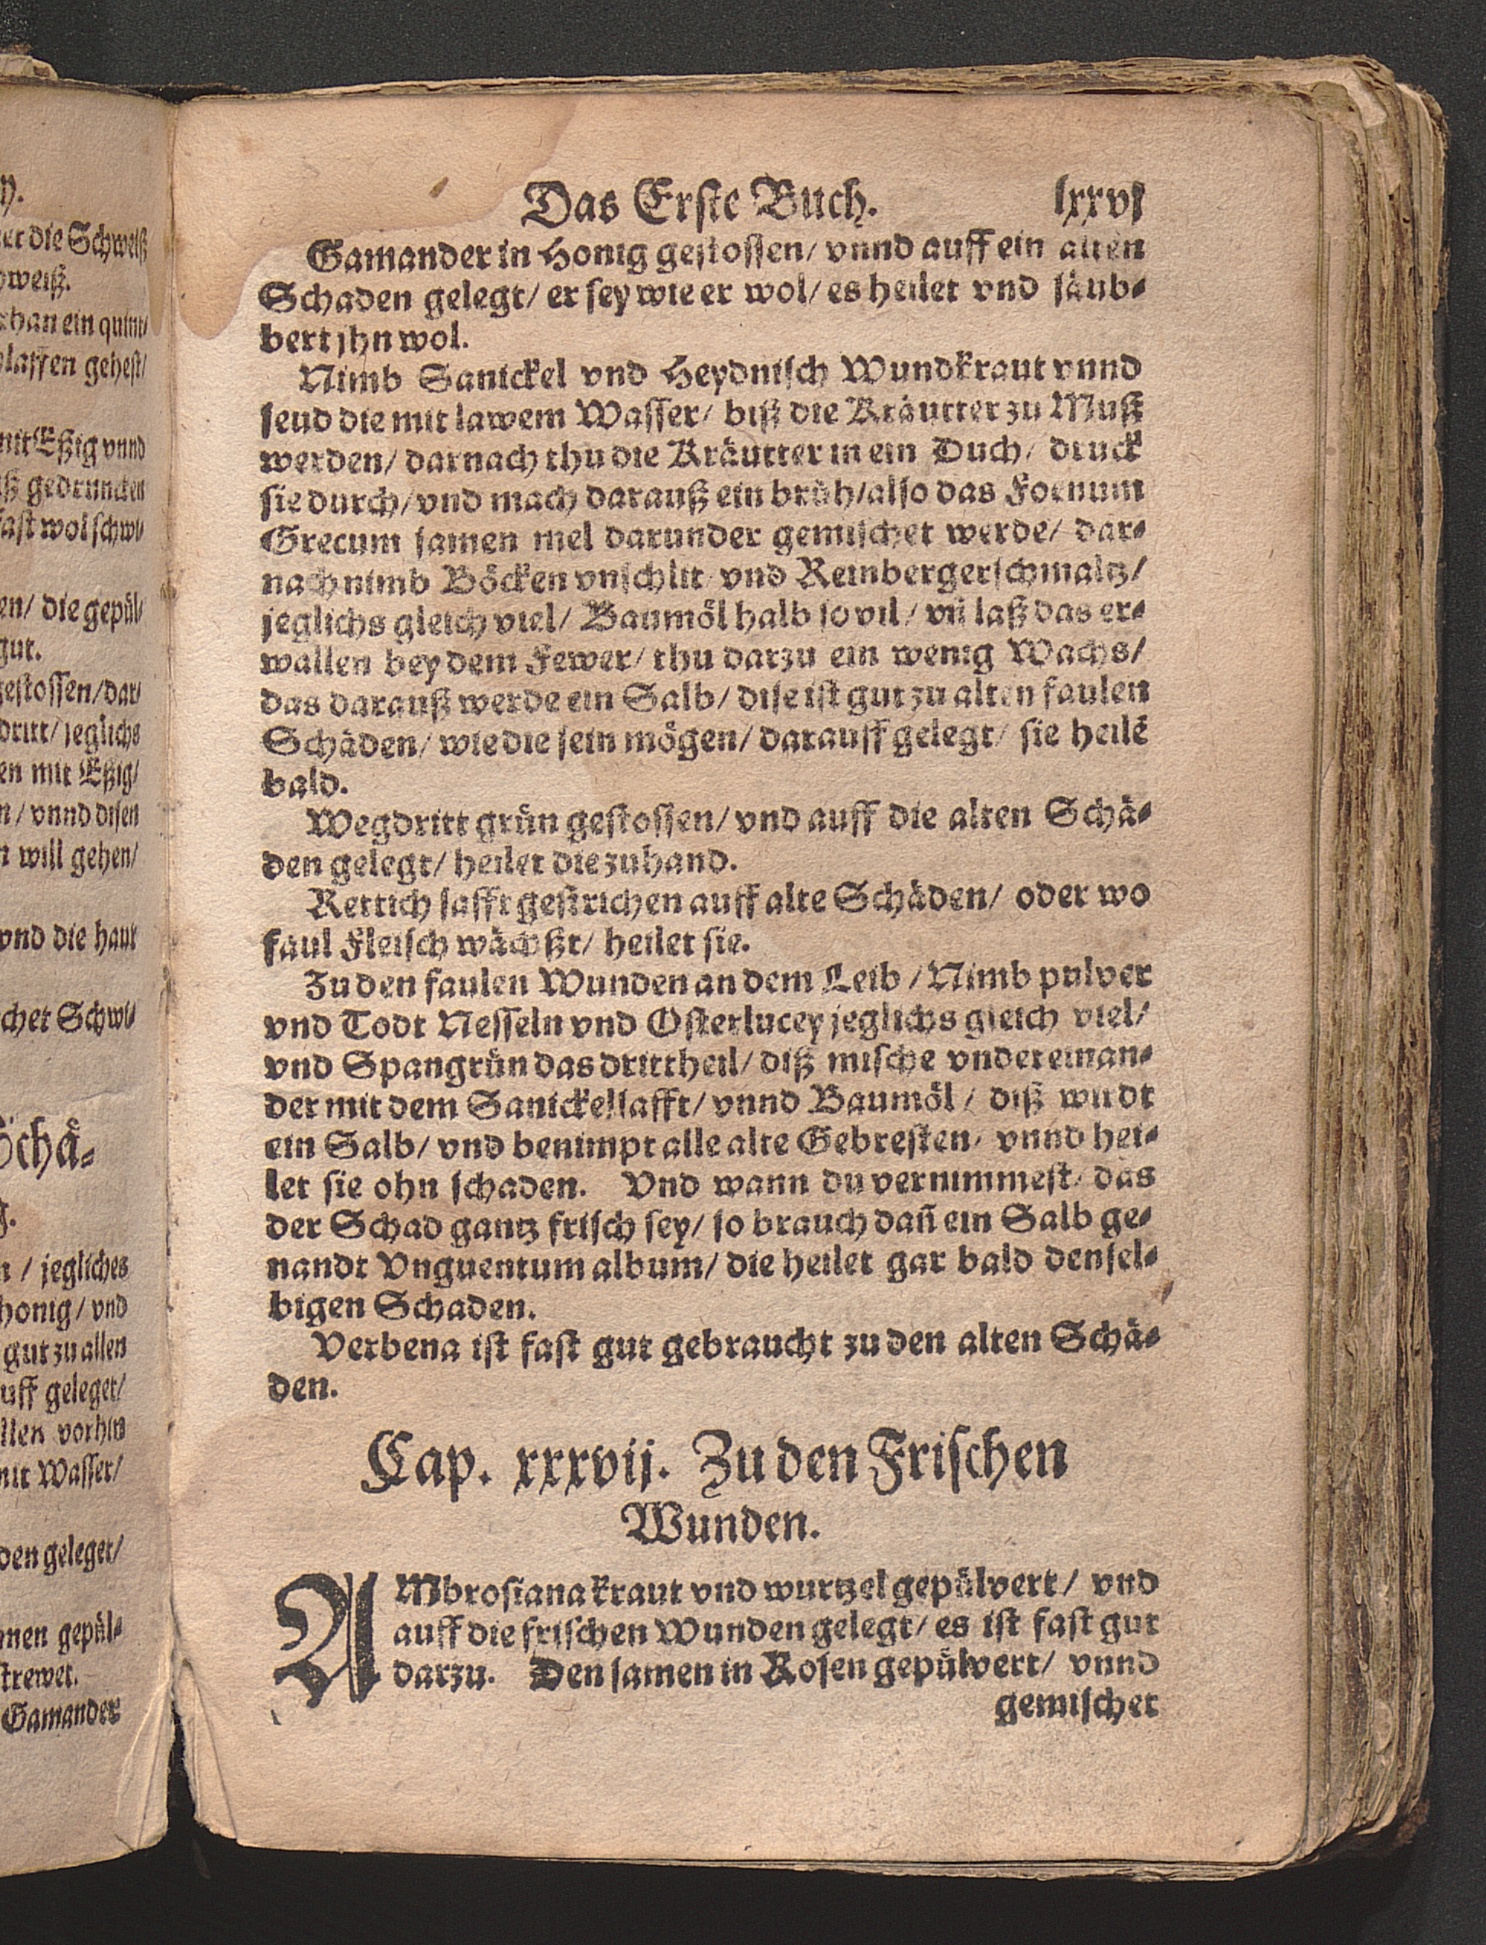 y.
er die Schweiß
weiß.
han ein quint/
lassen gehest/
mit Eßig vnnd
gedruncken
fast wol schwi/
en/ die gepül/
gut.
gestossen/dar/
dritt/ jeglichs
en mit Eßig/
n/ vnnd disen
will gehen/
vnd die haut
chet Schwi/
Schä-
n / jegliches
honig/ vnd
gut zu allen
uff geleget/
llen vorhin
mit Wasser/
den geleget/
men gepül-
strewet.
Gamander
Das Erste Buch. lxxvj
Gamander in Honig gestossen/ vnnd auff ein alten
Schaden gelegt/ er sey wie er wol/ es heilet vnd säub-
bert jhn wol.
Nimb Sanickel vnd Heydnisch Wundkraut vnnd
seud die mit lawem Wasser/ biß die Kräutter zu Muß
werden/ darnach thu die Kräutter in ein Duch/ druck
sie durch/ vnd mach darauß ein brüh/also das Foenum
Grecum samen mel darunder gemischet werde/ dar-
nach nimb Böcken vnschlit vnd Reinbergerschmaltz/
jeglichs gleich viel/ Baumöl halb so vil/ vñ laß das er-
wallen bey dem Fewer/ thu darzu ein wenig Wachs/
das darauß werde ein Salb/ dise ist gut zu alten faulen
Schäden/ wie die sein mögen/ darauff gelegt/ sie heilẽ
bald.
Wegdritt grün gestossen/ vnd auff die alten Schä-
den gelegt/ heilet die zuhand.
Rettich safft gestrichen auff alte Schäden/ oder wo
faul Fleisch wächßt/ heilet sie.
Zu den faulen Wunden an dem Leib / Nimb pulver
vnd Todt Nesseln vnd Osterlucey jeglichs gleich viel/
vnd Spangrün das drittheil/ diß mische vndereinan-
der mit dem Sanickelsafft/ vnnd Baumöl / diß wirdt
ein Salb/ vnd benimpt alle alte Gebresten/ vnnd hei-
let sie ohn schaden. Vnd wann du vernimmest/ das
der Schad gantz frisch sey/ so brauch dañ ein Salb ge-
nandt Vnguentum album/ die heilet gar bald densel-
bigen Schaden.
Verbena ist fast gut gebraucht zu den alten Schä-
den.
Cap. xxxvij. Zu den Frischen
Wunden.
AMbrosiana kraut vnd wurtzel gepülvert/ vnd
auff die frischen Wunden gelegt/ es ist fast gut
darzu. Den samen in Rosen gepülvert/ vnnd
gemischet